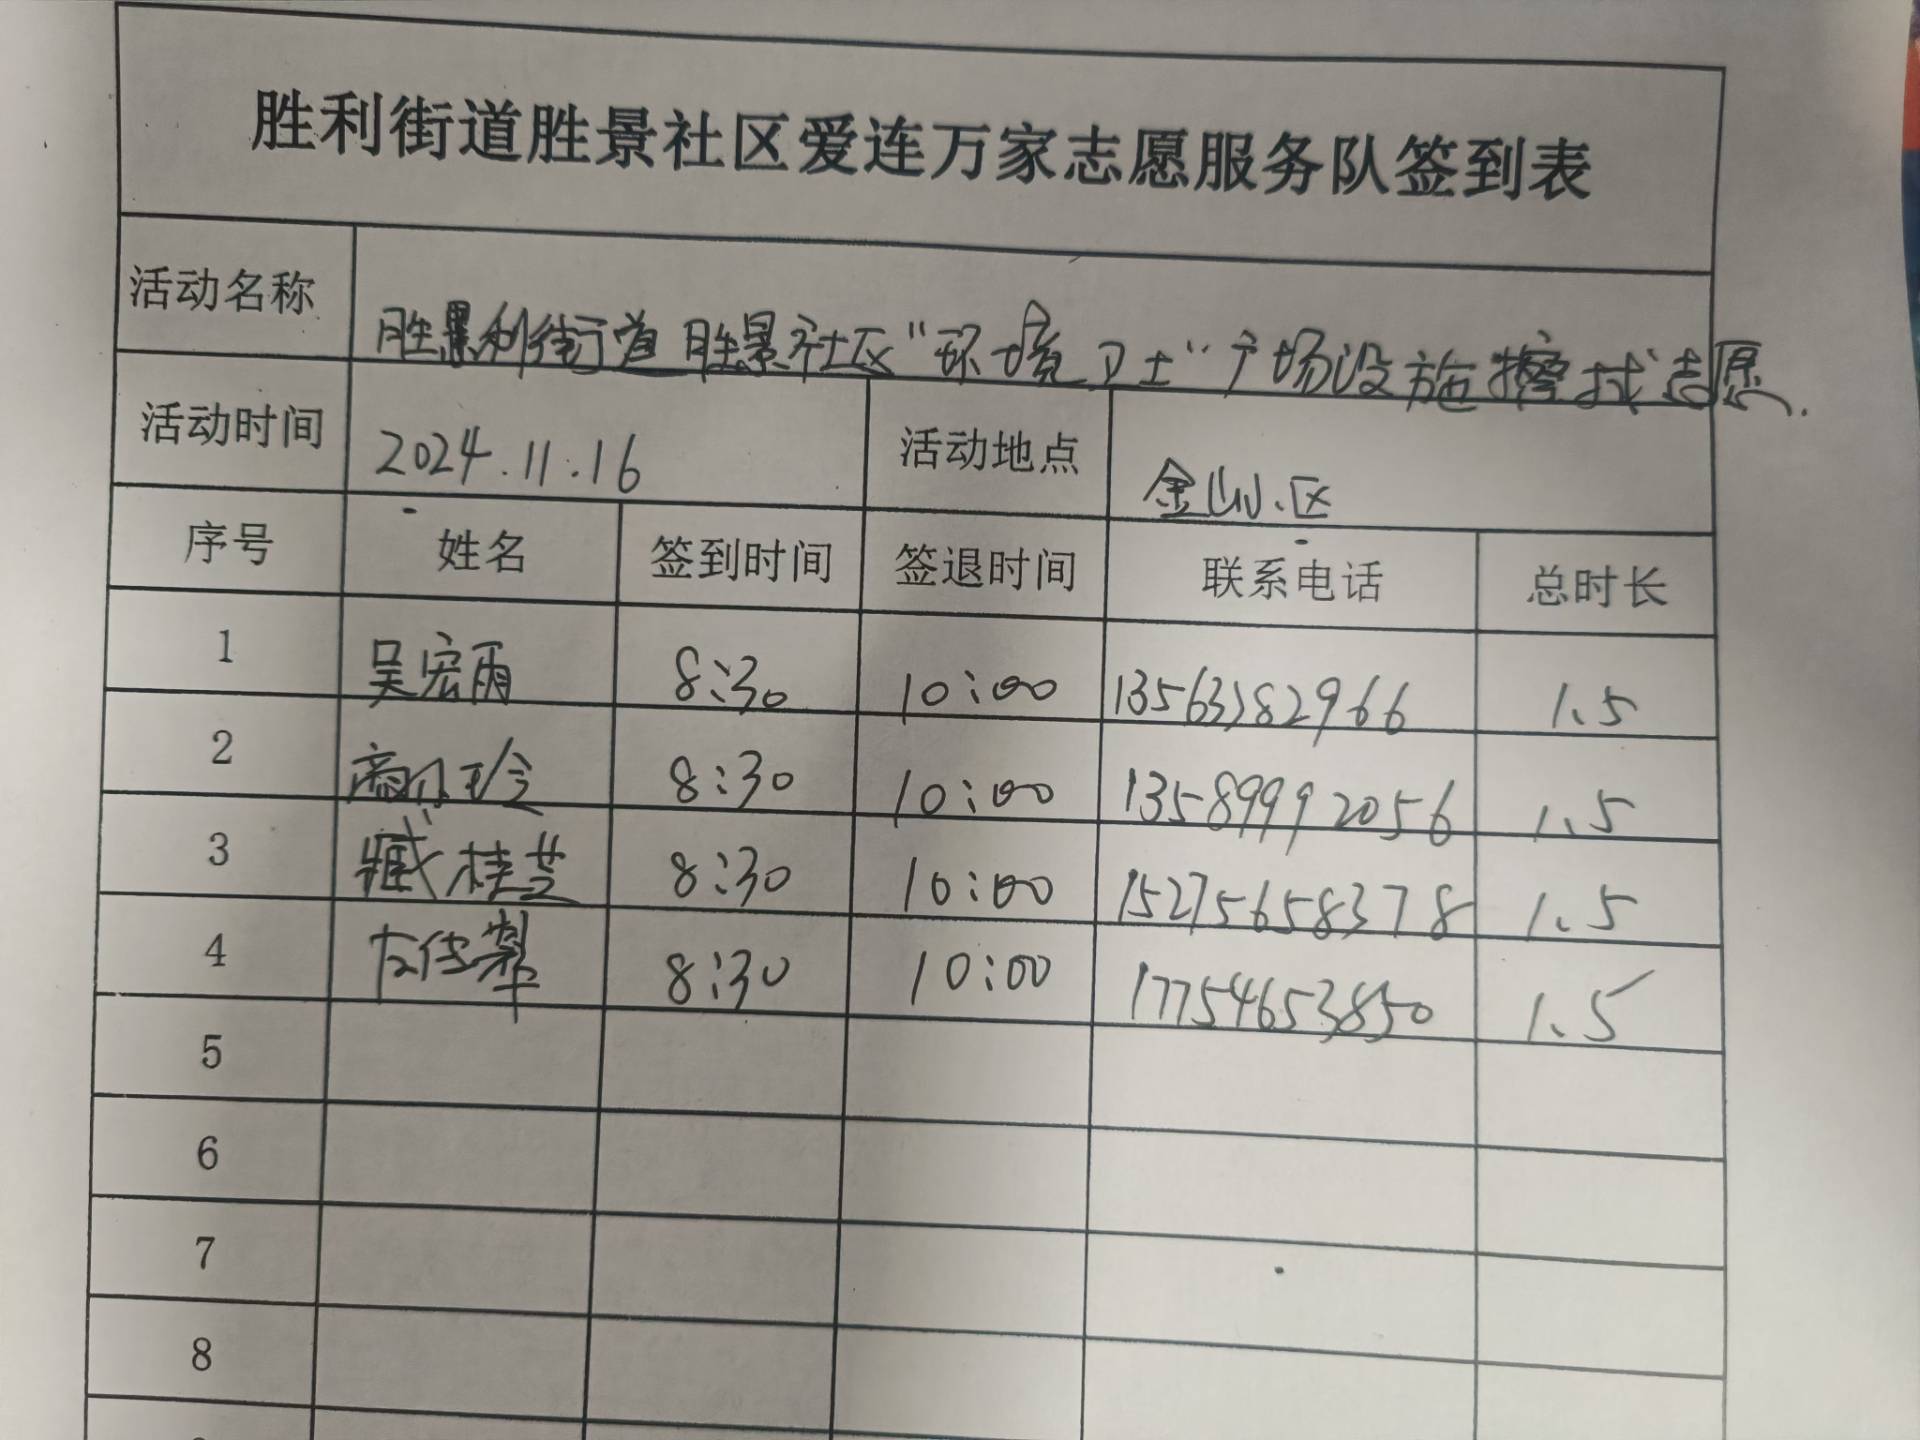 胜利街道胜景社区爱连万家志愿服务队签到表
活动名称 胜利街道胜景社区"环境卫士"广场设施擦拭志愿.
活动时间 2024.11.16 活动地点 金山小区
序号 姓名 签到时间 签退时间 联系电话 总时长
1 吴宏雨 8:30 10:00 13563382966 1.5
2 8:30 10:00 13589992056 1.5
3 臧桂芝 8:30 10:00 15275658378 1.5
4 8:30 10:00 17754653850 1.5
5
6
7
8